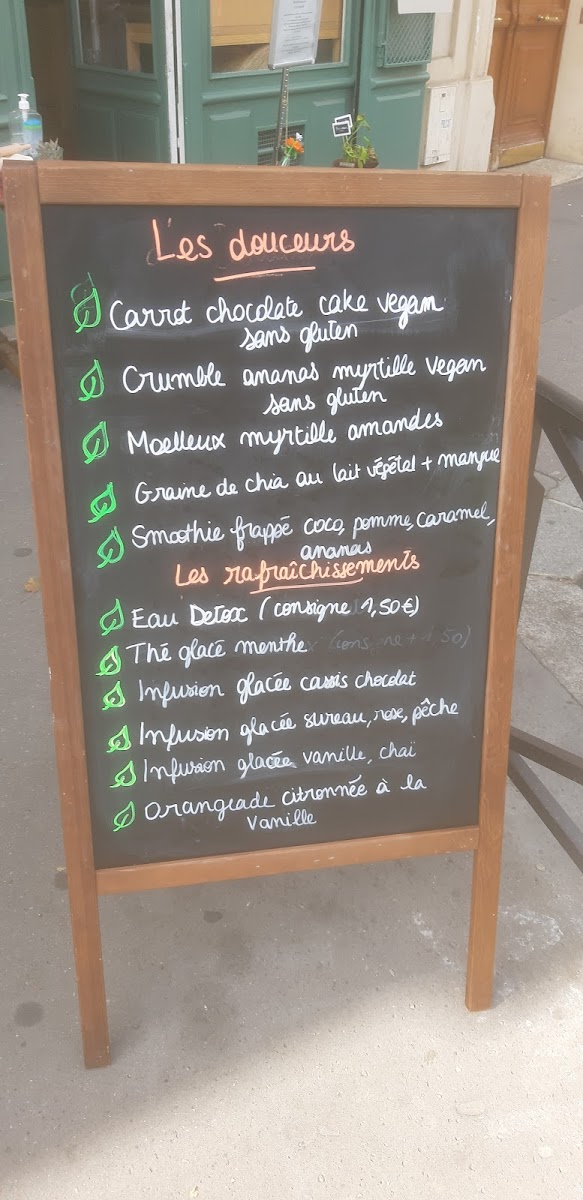 Les douceurs
Carrot chocolate cake vegan
sans gluten
Crumble ananas myrtille vegan
sans gluten
Moelleux myrtille amandes
Graine de chia au lait végétal + mangue
Smoothie frappé coco, pomme, caramel,
ananas
Les rafraîchissements
Eau Detox (consigne 1,50€)
Thé glacé menthe
Infusion glacée cassis chocolat
Infusion glacée sureau, rose, pêche
Infusion glacée vanille, chaï
Orangeade citronnée à la
vanille